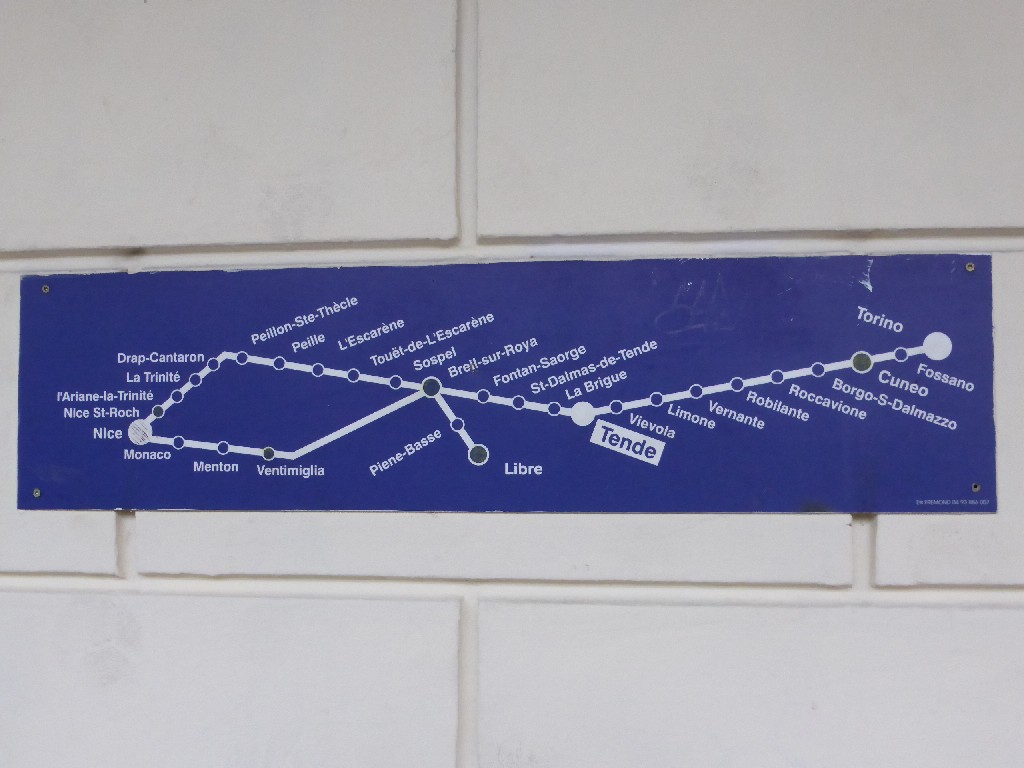 Peillon-Ste-Thècle
Peille
L'Escarène
Touët-de-L'Escarène
Sospel
Breil-sur-Roya
Fontan-Saorge
St-Dalmas-de-Tende
La Brigue
Torino
Drap-Cantaron
La Trinité
l'Ariane-la-Trinité
Nice St-Roch
Nice
Monaco
Menton
Ventimiglia
Piene-Basse
Libre
Tende
Vievola
Limone
Vernante
Robilante
Roccavione
Borgo-S-Dalmazzo
Cuneo
Fossano